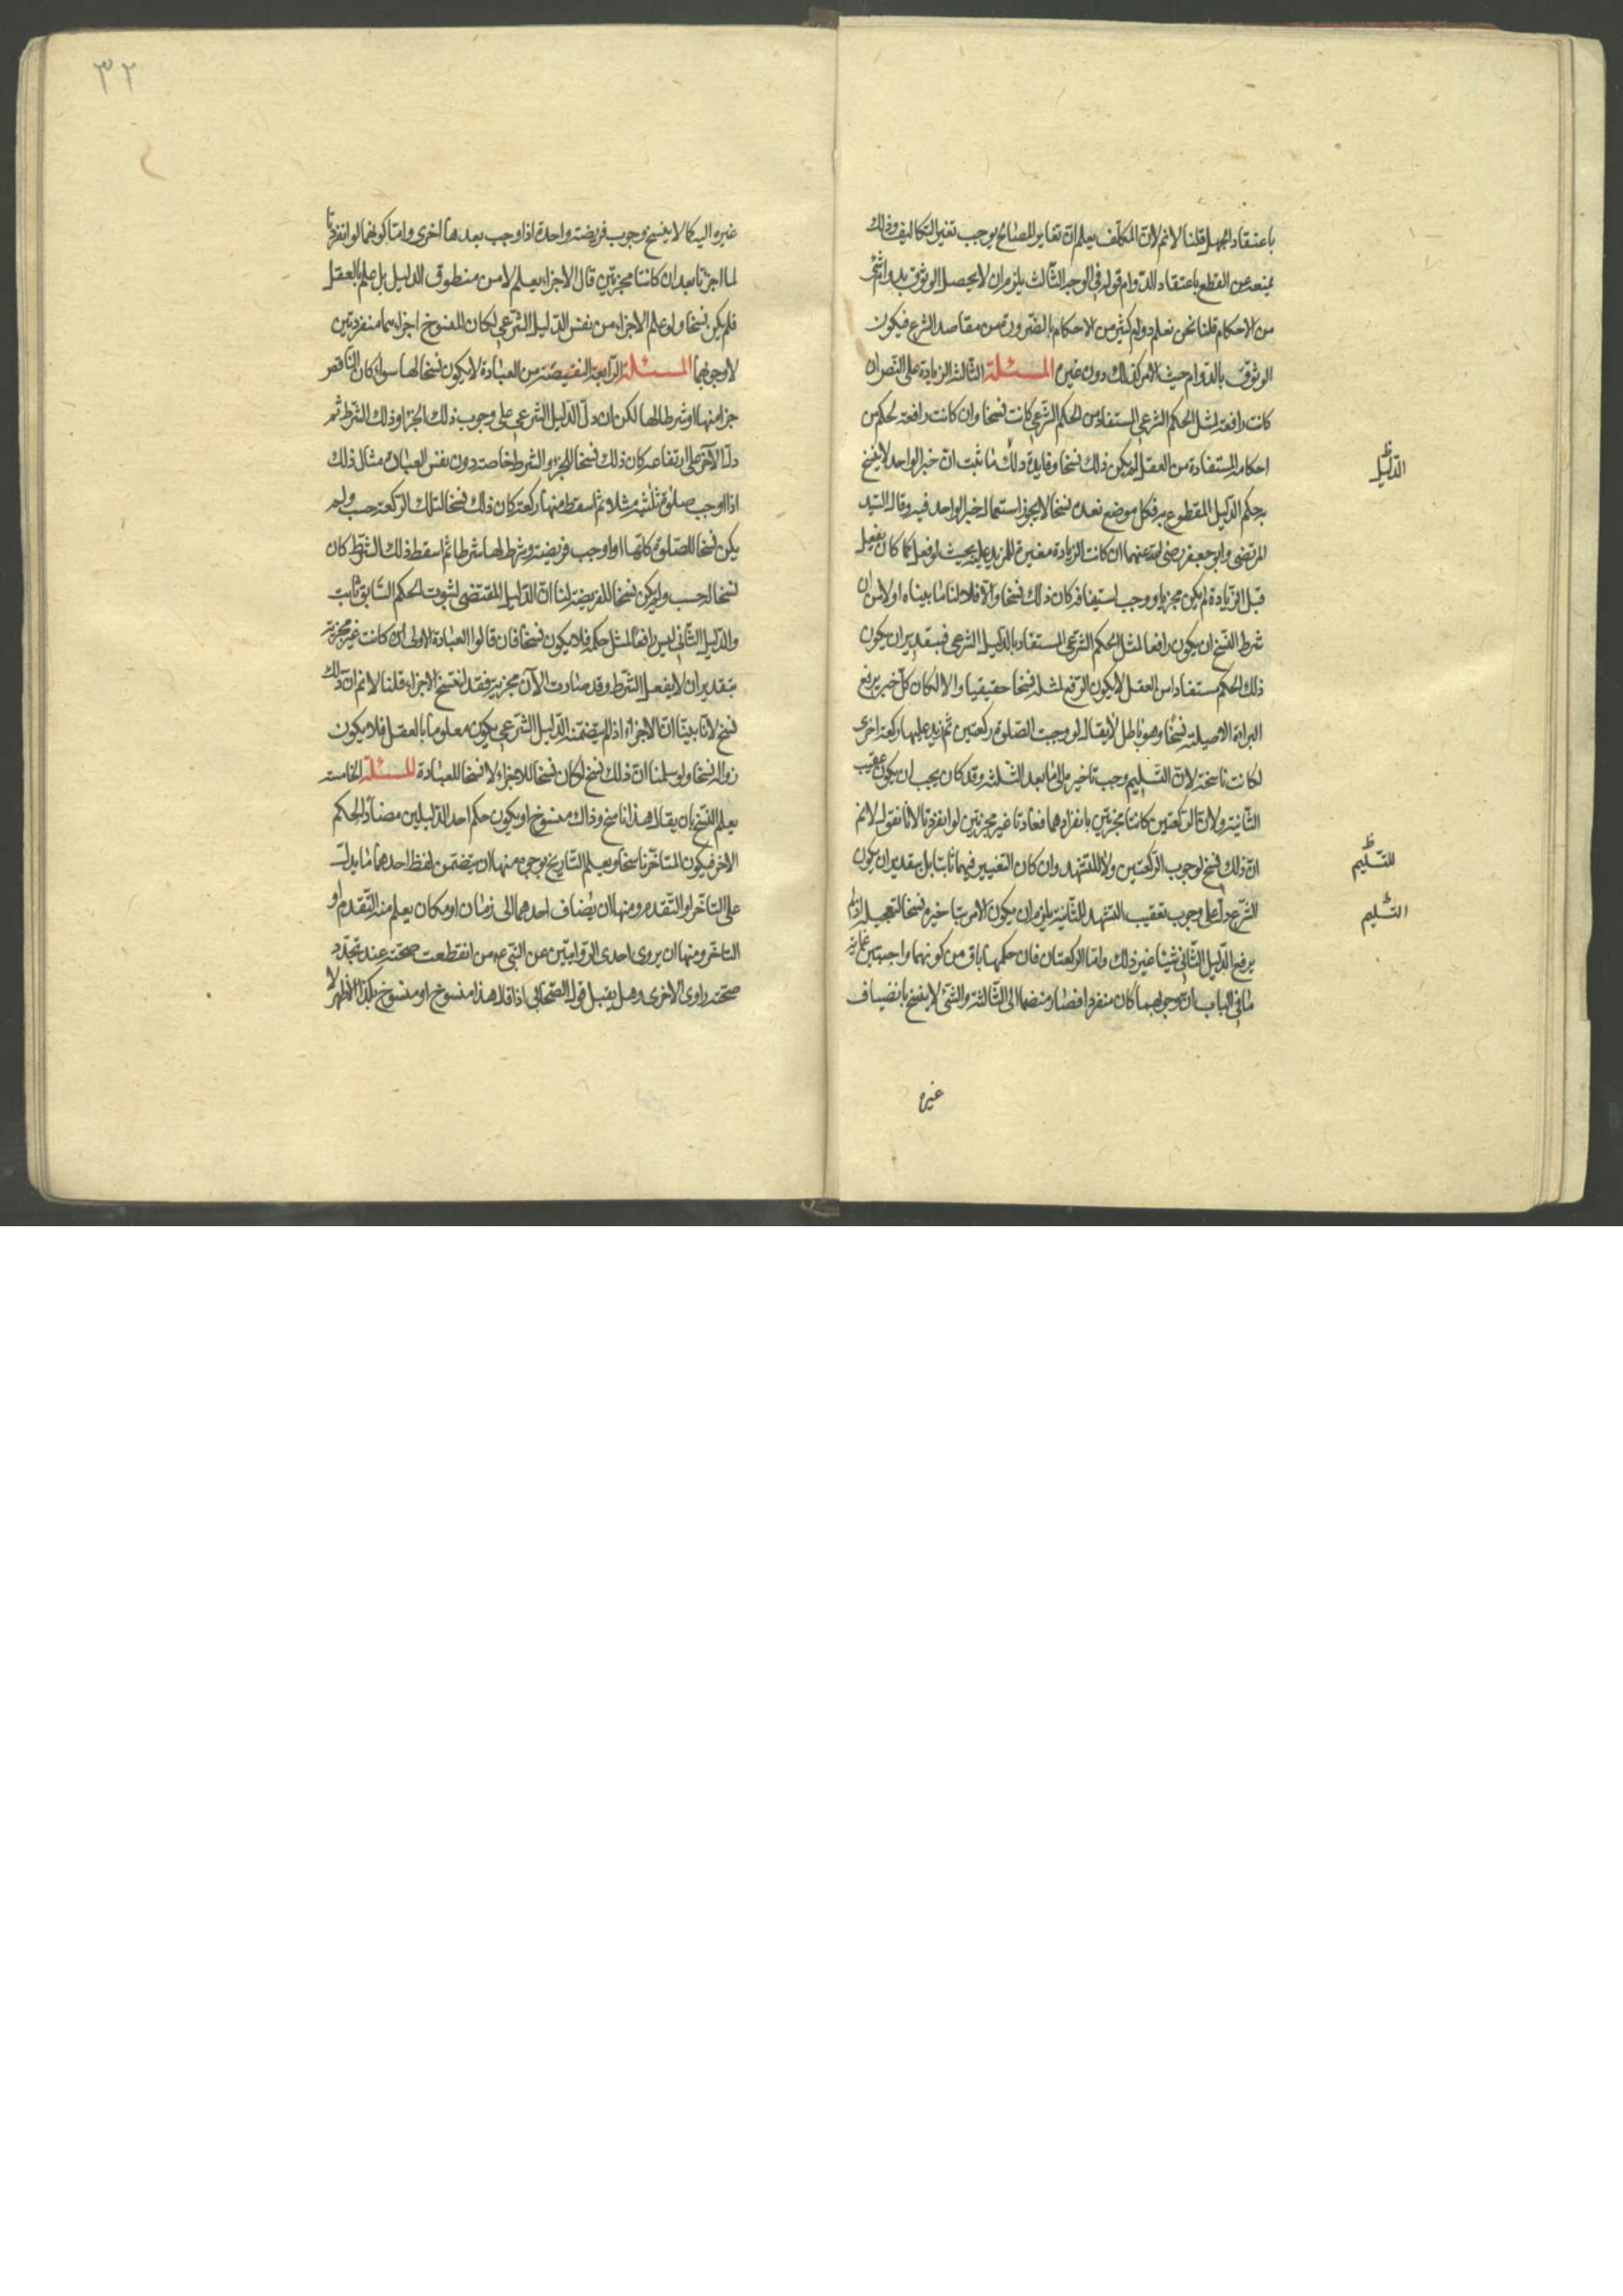 باعتقاد الجهل قلنا لانم لان المكلف يعلم ان تغاير المصالح يوجب تغير التكاليف وذلك
يمنعه عن القطع باعتقاد الدوام قوله في الوجه الثالث يلزم ان لا يحصل الوثوق بدوام شئ
من الاحكام قلنا نحن نعلم دوام كثير من الاحكام بالضرورة من مقاصد الشرع فيكون
الوثوق بالدوام حيث الامر كذلك دون غيره المسئلة الثالثة الزيادة على النص ان
كانت رافعة لمثل الحكم الشرعي المستفاد من الحكم الشرعي كانت نسخا وان كانت رافعة لحكم من
احكامه المستفادة من العقل لم يكن ذلك نسخا وفايدة ذلك ما ثبت ان خبر الواحد لا ينسخ
به حكم الدليل المقطوع به فكل موضع نعده نسخا لا يجوز استعمال خبر الواحد فيه وقال السيد
المرتضى وابو جعفر رضي الله عنهما ان كانت الزيادة مغيرة للمزيد عليه بحيث لو فعل كما كان يفعل
قبل الزيادة لم يكن مجزيا ووجب استينافه كان ذلك نسخا والا فلا لنا ما بيناه اولا من ان
شرط النسخ ان يكون رافعا لمثل الحكم الشرعي المستفاد بالدليل الشرعي فبتقدير ان يكون
ذلك الحكم مستفادا من العقل لا يكون الرفع لمثله نسخا حقيقيا والا لكان كل خبر يرفع
البراءة الاصيلة نسخا وهو باطل لا يقال لو وجبت الصلوة ركعتين ثم زيد عليها ركعة اخرى
لكانت ناسخة لان التسليم وجب تاخيره الى ما بعد الثلثة وقد كان يجب ان يكون عقيب
الثانية ولان الركعتين كانتا مجزيتين بانفرادهما فعادتا غير مجزيتين لو انفردتا لانا نقول لانم
ان ذلك نسخ لوجوب الركعتين ولا للتشهد وان كان التغيير فيهما ثابتا بل بتقدير ان يكون
الشرع دل على وجوب تعقيب التشهد للثانية يلزم ان يكون الامر بتاخيره نسخا لتعجيله اذ لم
يرفع الدليل الثاني شيئا غير ذلك واما الركعتان فان حكمها باق من كونهما واجبتين غاية
ما في الباب ان وجوبهما كان منفردا فصار منضما الى الثالثة والشئ لا ينسخ بانضياف
الدليل
للتسليم
التسليم
غيره
٣٢
غيره اليه كما لا ينسخ وجوب فريضة واحدة اذا وجب بعدها اخرى واما كونهما لو انفردتا
لما اجزتا بعد ان كانتا مجزيتين قال الاجزاء يعلم لا من منطوق الدليل بل علم بالعقل
فلم يكن نسخا ولو علم الاجزاء من نفس الدليل الشرعي لكان المنسوخ اجزاءهما منفردتين
لا وجوبهما المسئلة الرابعة النقيصة من العبادة لا يكون نسخا لها سواء كان الناقص
جزءا منها او شرطا لها لكن ان دل الدليل الشرعي على وجوب ذلك الجزء او ذلك الشرط ثم
دل الآخر على ارتفاعه كان ذلك نسخا للجزء والشرط خاصة دون نفس العبادة مثال ذلك
اذا اوجب صلوة ثلثية مثلا ثم اسقط منها ركعة كان ذلك نسخا لتلك الركعة حسب ولم
يكن نسخا للصلوة كلها او اوجب فريضة وشرط لها شرطا ثم اسقط ذلك الشرط كان
نسخا له حسب ولم يكن نسخا للفريضة لنا ان الدليل المقتضى لثبوت الحكم السابق ثابت
والدليل الثاني ليس رافعا لمثل حكمه فلا يكون نسخا فان قالوا العبادة الاولى كانت غير مجزية
بتقدير ان لا يفعل الشرط وقد صارت الآن مجزية فقد انتسخ الاجزاء قلنا لانم ان ذلك
نسخ لانا بينا ان الاجزاء اذا لم يتضمنه الدليل الشرعي يكون معلوما بالعقل فلا يكون
زواله نسخا ولو سلمنا ان ذلك نسخ لكان نسخا للاجزاء لا نسخا للعبادة المسئلة الخامسة
يعلم النسخ بان يقال هذا ناسخ وذاك منسوخ او يكون حكم احد الدليلين مضادا لحكم
الاخر فيكون المتاخر ناسخا ويعلم التاريخ بوجوه منها ان يتضمن لفظ احدهما ما يدل
على التاخر او التقدم ومنها ان يضاف احدهما الى زمان او مكان يعلم منه التقدم او
التاخر ومنها ان يروى احدى الروايتين عن النبي ع من انقطعت صحبته عند تجدد
صحبة راوى الاخرى وهل يقبل قول الصحابي اذا قال هذا منسوخ او منسوخ بكذا الاظهر لا